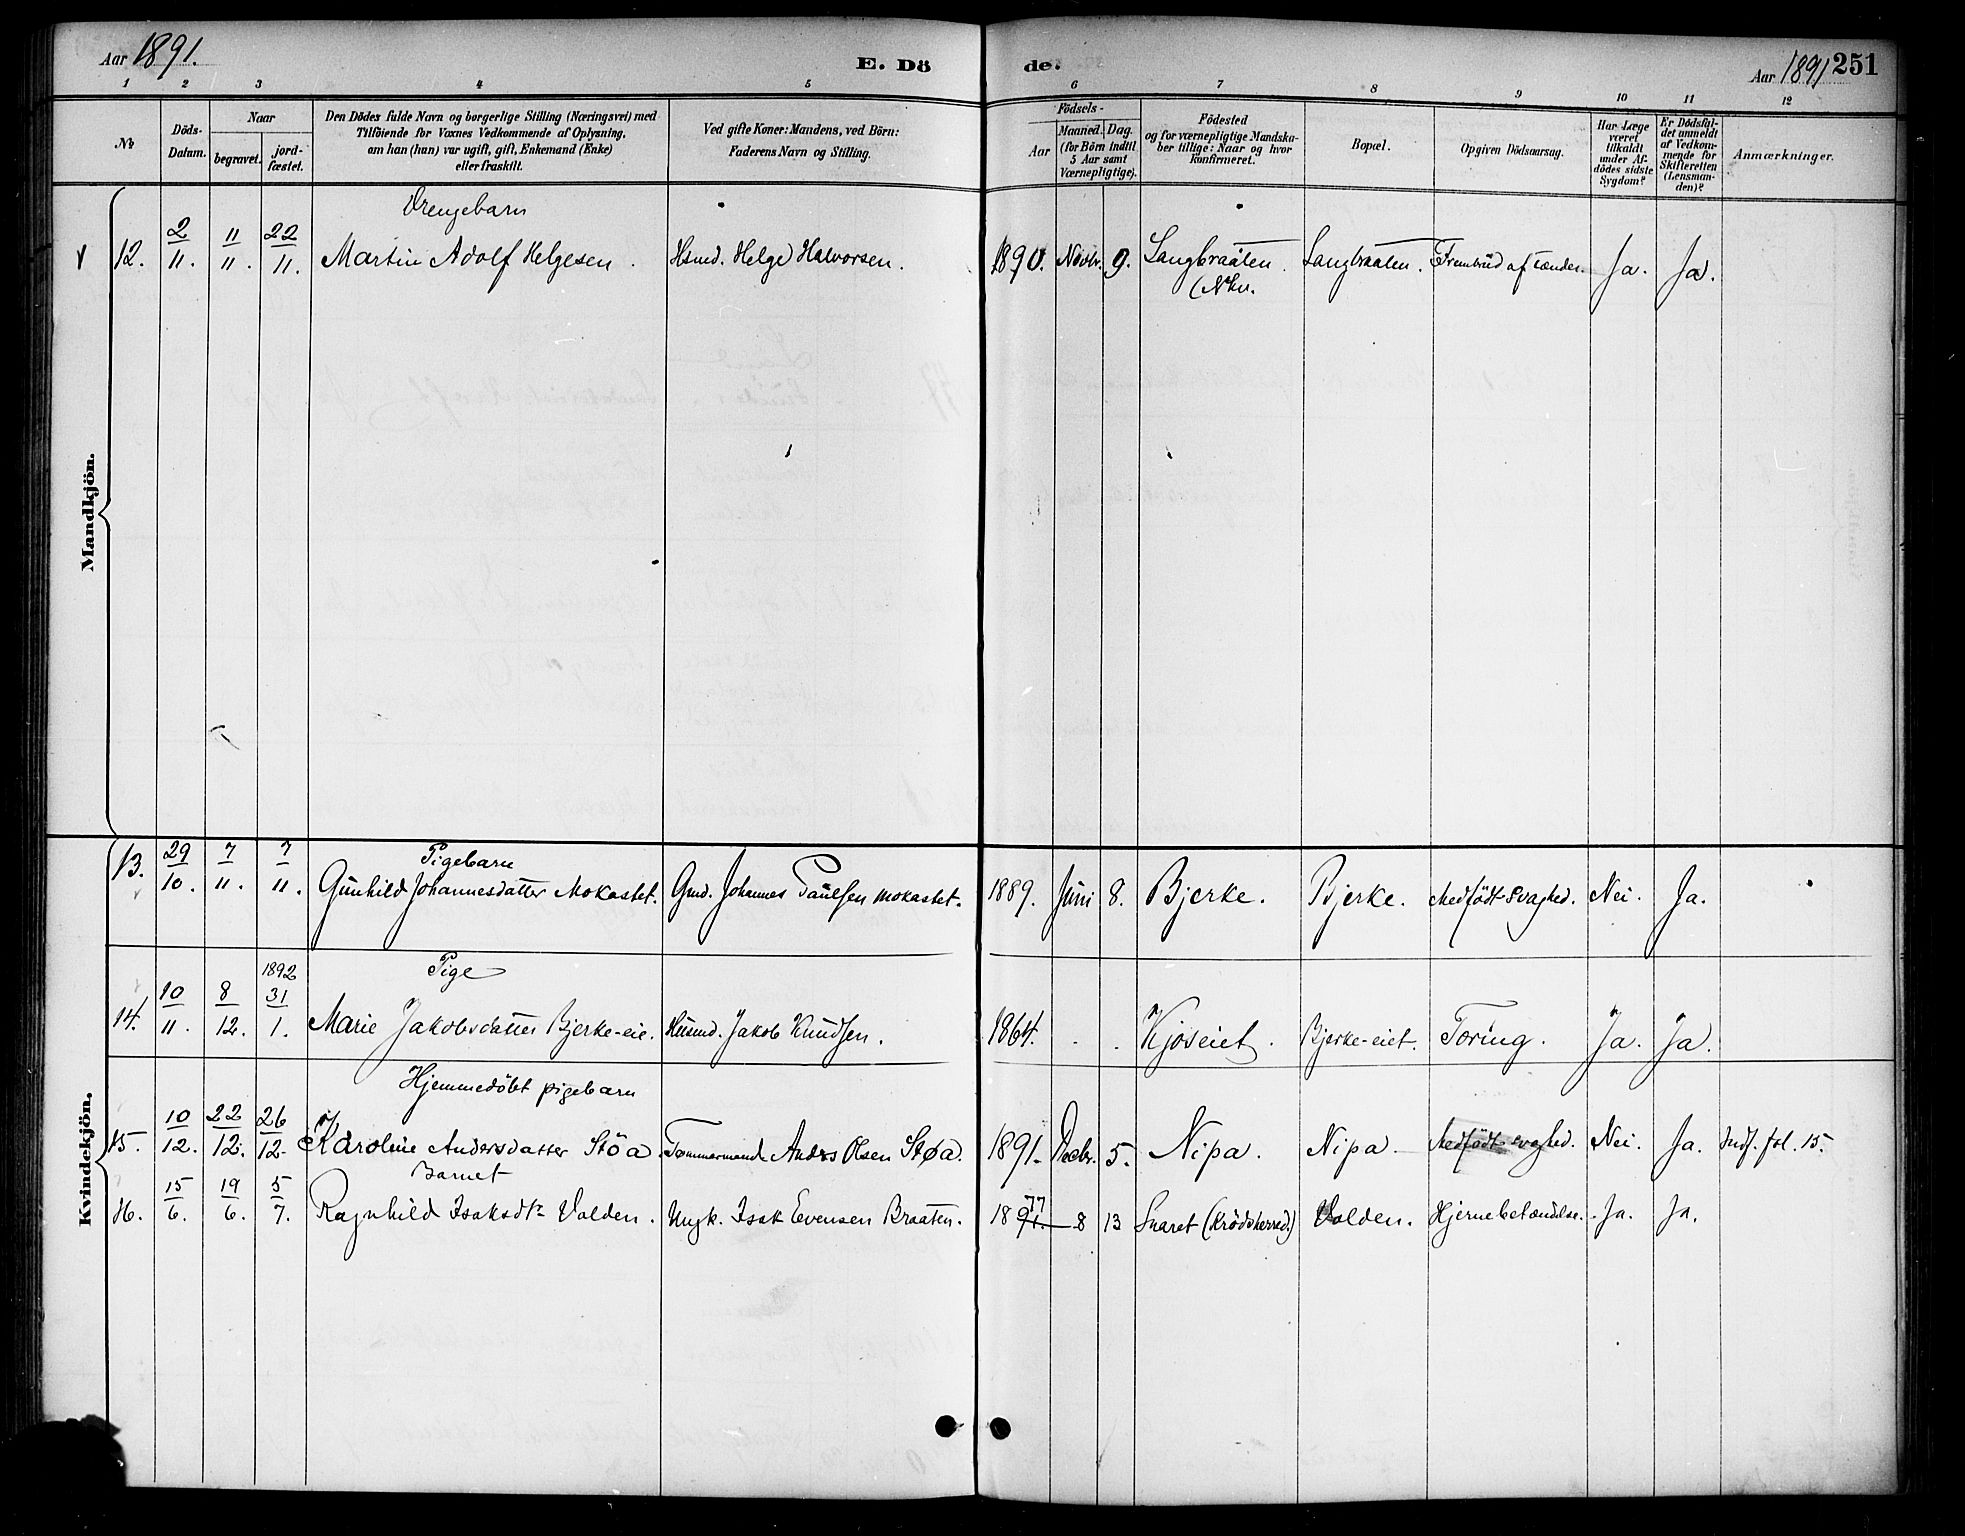 Aar 1891.
E. Dö
de.
Aar 1891
251
1 2 3 4 5 6 7 8 9 10 11 12
No
Döds-
Datum.
Naar
begravet.
jord-
fæstet.
Den Dödes fulde Navn og borgerlige Stilling (Næringsvei) med
Tilföiende for Voxnes Vedkommende af Oplysning,
om han (hun) var ugift, gift, Enkemand (Enke)
eller fraskilt.
Ved gifte Koner: Mandens, ved Börn:
Faderens Navn og Stilling.
Födsels-
Aar
Maaned. Dag.
(for Börn indtil
5 Aar samt
Værnepligtige).
Födested
og for værnepligtige Mandska-
ber tillige: Naar og hvor
Konfirmeret.
Bopæl.
Opgiven Dödsaarsag.
Har Læge
været
tilkaldt
under Af-
dödes sidste
Sygdom?
Er Dödsfal-
det anmeldt
af Vedkom-
mende for
Skifteretten
(Lensman-
den)?
Anmærkninger.
Mandkjön.
Drengebarn
12. 2/11. 11/11. 22/11. Martin Adolf Helgesen. Hsmd. Helge Halvorsen. 1890. Novbr. 9. Langbraaten. Langbraaten. Frembrud af Tænder. Ja. Ja.
Kvindekjön.
Pigebarn
13. 29/10. 7/11. 7/11. Gunhild Johannesdatter Mokastet. Gmd. Johannes Paulsen Mokastet. 1889. Juni 8. Bjerke. Bjerke. Medfödt Svaghed. Nei. Ja.
1892
Pige
14. 10/11. 8/12. 31/1. Marie Jakobsdatter Bjerke-eie. Husmd. Jakob Knudsen. 1864. Kjöseiet. Bjerke-eiet. Tæring. Ja. Ja.
Hjemmedöbt pigebarn
15. 10/12. 22/12. 26/12. Karoline Andersdatter Stöa. Tømmermand Anders Olsen Støa. 1891. Decbr. 5. Nipa. Nipa. Medfödt svaghed. Nei. Ja. Indf. fol. 15.
Barnet
16. 15/6. 19/6. 5/7. Ragnhild Isaksdtr Volden. Ungk. Isak Evensen Braaten. 1891. 77 8 13 Snaret (Krödsherred.) Volden. Hjernebetændelse. Ja. Ja.